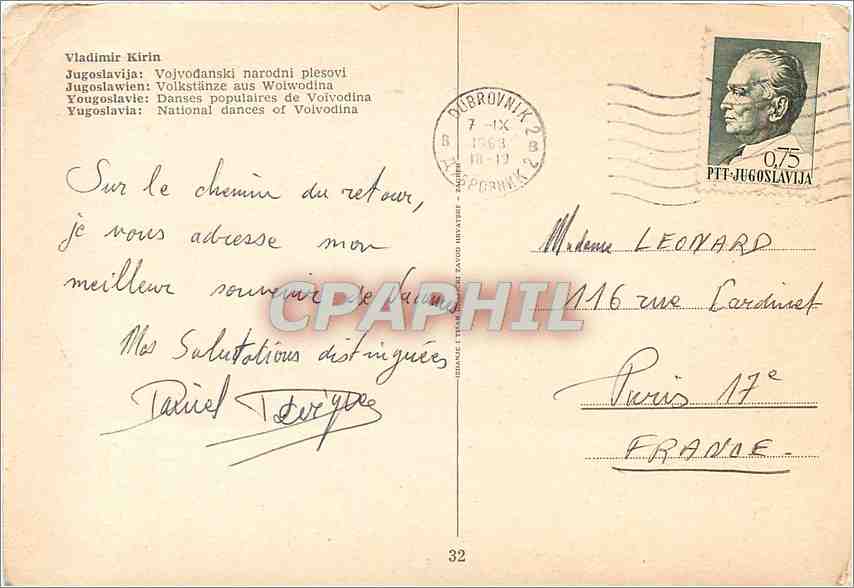 Vladimir Kirin
Jugoslavija: Vojvođanski narodni plesovi
Jugoslawien: Volkstänze aus Woiwodina
Yougoslavie: Danses populaires de Voïvodina
Yugoslavia: National dances of Voivodina
Sur le chemin du retour,
je vous adresse mon
meilleur souvenir de
Mes Salutations distinguées
Daniel
DUBROVNIK 2
7 -IX
1968
18-19
B B
ДУБРОВНИК 2
0,75
PTT-JUGOSLAVIJA
Madame LEONARD
116 rue Cardinet
Paris 17e
FRANCE.
IZDANJE I TISAK ZAVOD HRVATSKE - ZAGREB
CPAPHIL
32